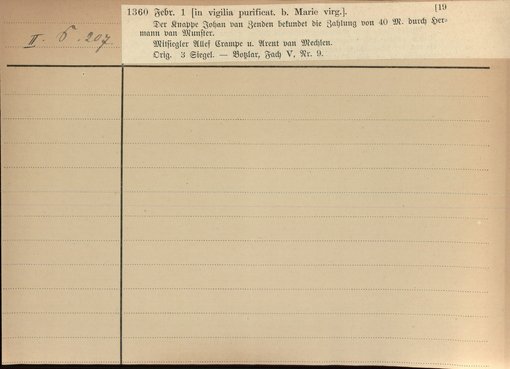 1360 Febr. 1 [in vigilia purificat. b. Marie virg.]. [19
Der Knappe Johan van Zenden bekundet die Zahlung von 40 M. durch Her-
mann van Munster.
Mitsiegler Allef Crampe u. Arent van Mechlen.
Orig. 3 Siegel. — Botzlar, Fach V, Nr. 9.
II. 6. 207